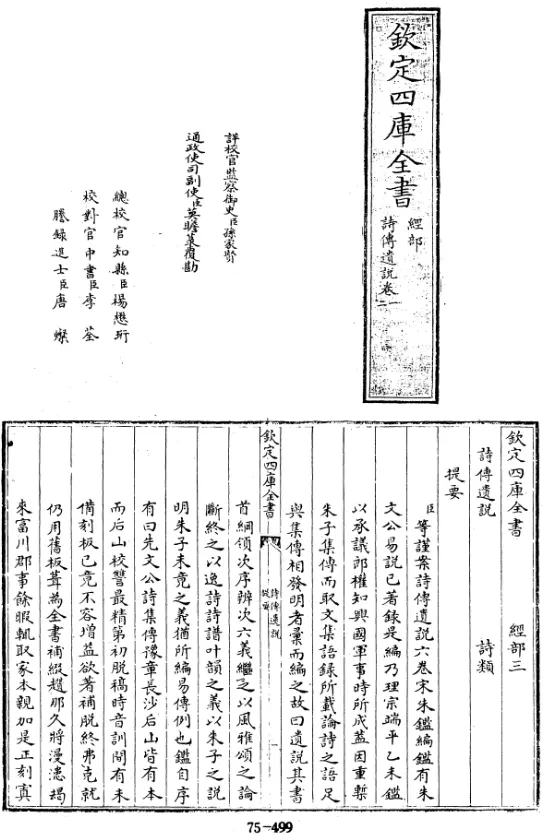 欽定四庫全書
經部
詩傳遺説卷一二
詳校官監察御史臣孫家賢
通政使司副使臣莫瞻菉覆勘
總校官知縣臣楊懋珩
校對官中書臣李荃
謄録進士臣唐燦
欽定四庫全書 經部三
詩傳遺説 詩類
提要
臣等謹案詩傳遺説六卷宋朱鑑編鑑有朱
文公易説已著録是編乃理宗端平乙未鑑
以承議郎權知興國軍事時所成葢因重槧
朱子集傳而取文集語録所載論詩之語足
與集傳相發明者彚而編之故曰遺説其書
欽定四庫全書
詩傳遺説
提要
一
首綱領次序辨次六義繼之以風雅頌之論
斷終之以逸詩詩譜叶韻之義以朱子之説
明朱子未竟之義猶所編易傳例也鑑自序
有曰先文公詩集傳豫章長沙后山皆有本
而后山校讐最精第初脱稿時音訓間有未
備刻板已竟不容增益欲著補脱終弗克就
仍用舊板葺為全書補綴趲那久將漫漶朅
來富川郡事餘暇輒取家本親加是正刻寘
75-499